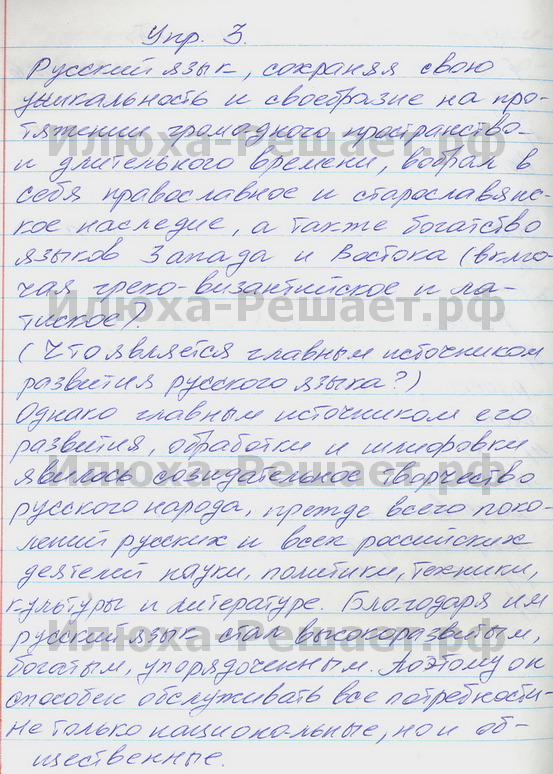 Упр. 3.
Русский язык, сохраняя свою
уникальность и своеобразие на про-
тяжении громадного пространства
и длительного времени, вобрал в
себя православное и старославянс-
кое наследие, а также богатство
языков Запада и Востока (вклю-
чая греко-византийское и ла-
тиское).
(Что является главным источником
развития русского языка?)
Однако главным источником его
развития, обработки и шлифовки
явилось созидательное творчество
русского народа, прежде всего поко-
лений русских и всех российских
деятелей науки, политики, техники,
культуры и литературе. Благодаря им
русский язык стал высокоразвитым,
богатым, упорядоченным. Поэтому он
способен обслуживать все потребности-
не только национальные, но и об-
щественные.
Илюха-Решает.рф
Илюха-Решает.рф
Илюха-Решает.рф
Илюха-Решает.рф